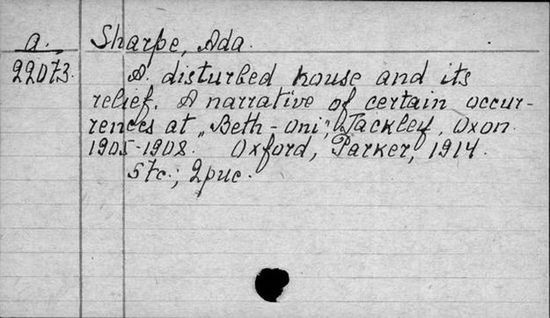 a. Sharpe, Ada.
22073. A. disturbed house and its
relief. A narrative of certain occur-
rences at „Beth-oni”, Tackley, Oxon.
1905-1908. Oxford, Parker, 1914.
57c.; 2рис.